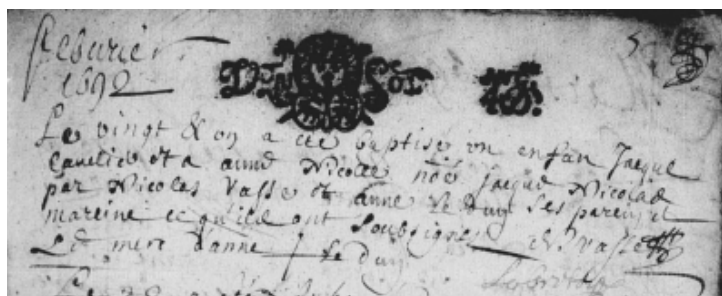 feburie
1692
5
Dun Sol
Le vingt & un a ete baptise un enfan Jacque
et a anne Nicolle noe Jacque Nicolas
par Nicolas Vasse et anne le duy ses parein et
mareine ce qu'ils ont soubsigne N. vasse
La merc d'anne le duy